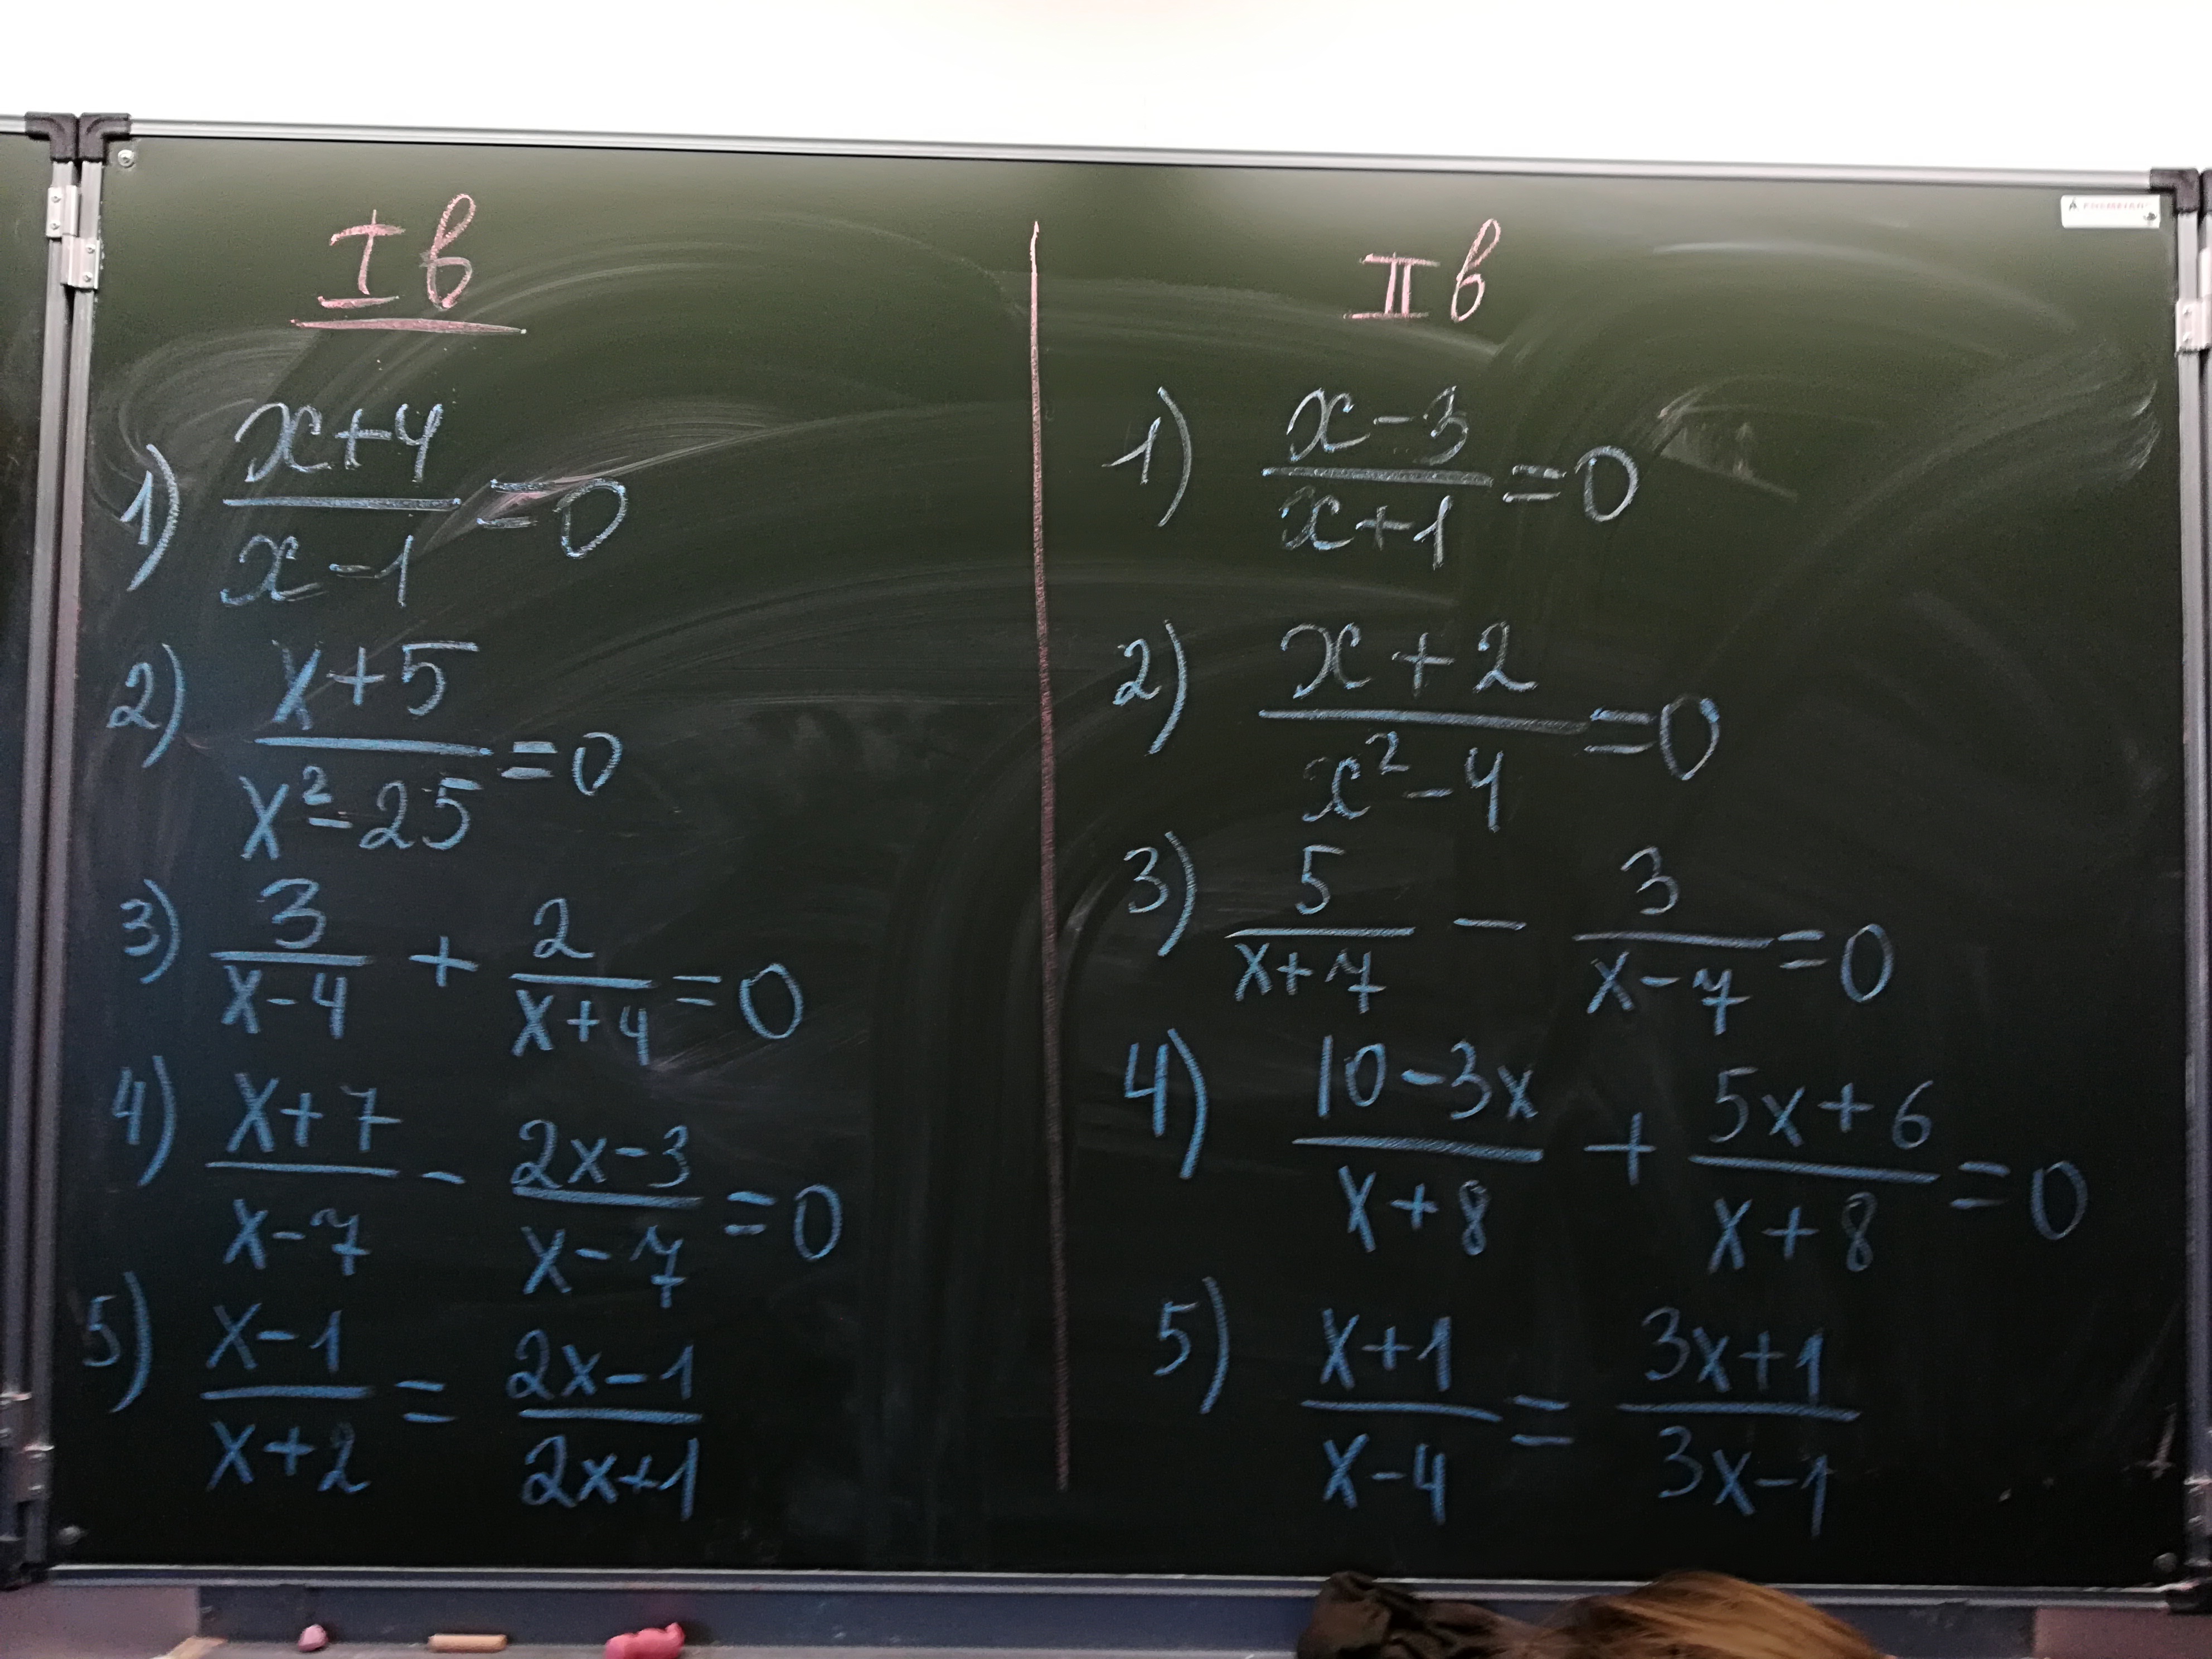 I в
1) (x+4)/(x-1) =0
2) (x+5)/(x²-25) =0
3) 3/(x-4) + 2/(x+4) =0
4) (x+7)/(x-7) - (2x-3)/(x-7) =0
5) (x-1)/(x+2) = (2x-1)/(2x+1)
II в
1) (x-3)/(x+1) =0
2) (x+2)/(x²-4) =0
3) 5/(x+7) - 3/(x-7) =0
4) (10-3x)/(x+8) + (5x+6)/(x+8) =0
5) (x+1)/(x-4) = (3x+1)/(3x-1)